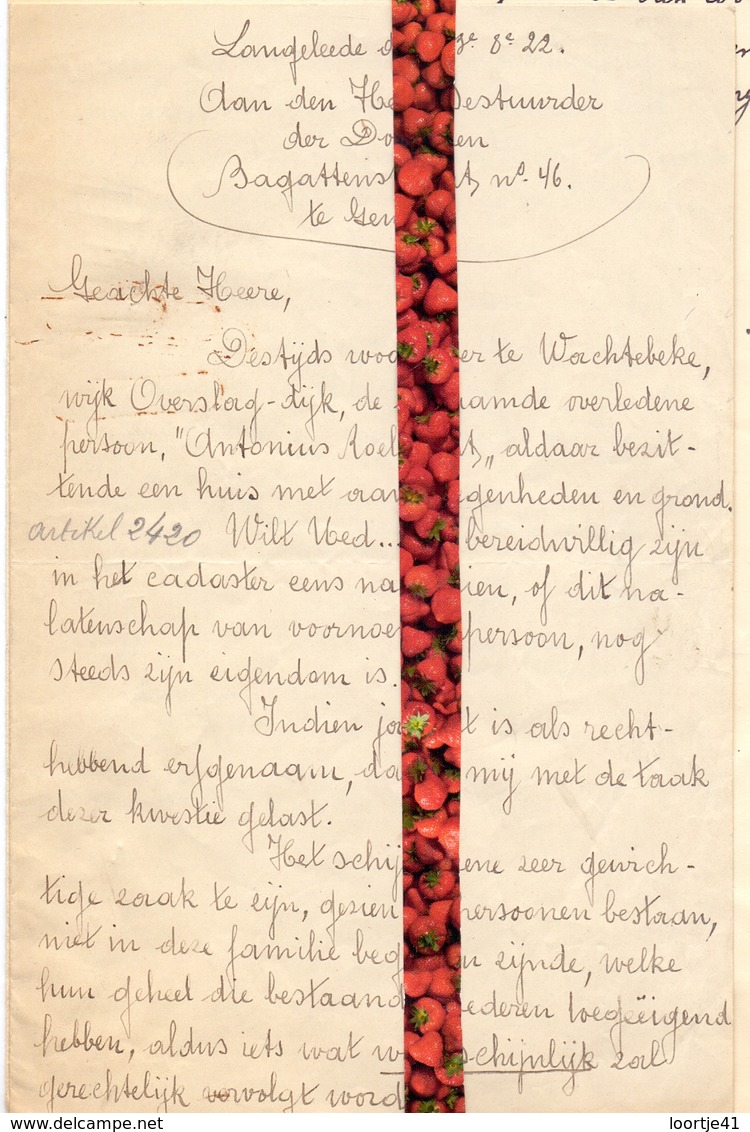 Langeleede d 3e 8e 22.
Aan den He Bestuurder
der Do en
Bagattenst t, no. 46.
te Gen
Geachte Heere,
Destijds woo er te Wachtebeke,
wijk Overslag-dijk, de aamde overledene
persoon, "Antonius Roel t" aldaar bezit-
tende een huis met aan genheden en grond.
artikel 2420 Wilt Ued... bereidwillig zijn
in het cadaster eens na ien, of dit na-
latenschap van voornoe persoon, nog
steeds zijn eigendom is.
Indien ja t is als recht-
hebbend erfgenaam, da mij met de taak
dezer kwestie gelast.
Het schij ene zeer gewich-
tige zaak te zijn, gezien persoonen bestaan,
niet in deze familie beg n zijnde, welke
hun geheel die bestaand ederen toegeëigend
hebben, aldus iets wat w schijnlijk zal
gerechtelijk vervolgt word
loortje41